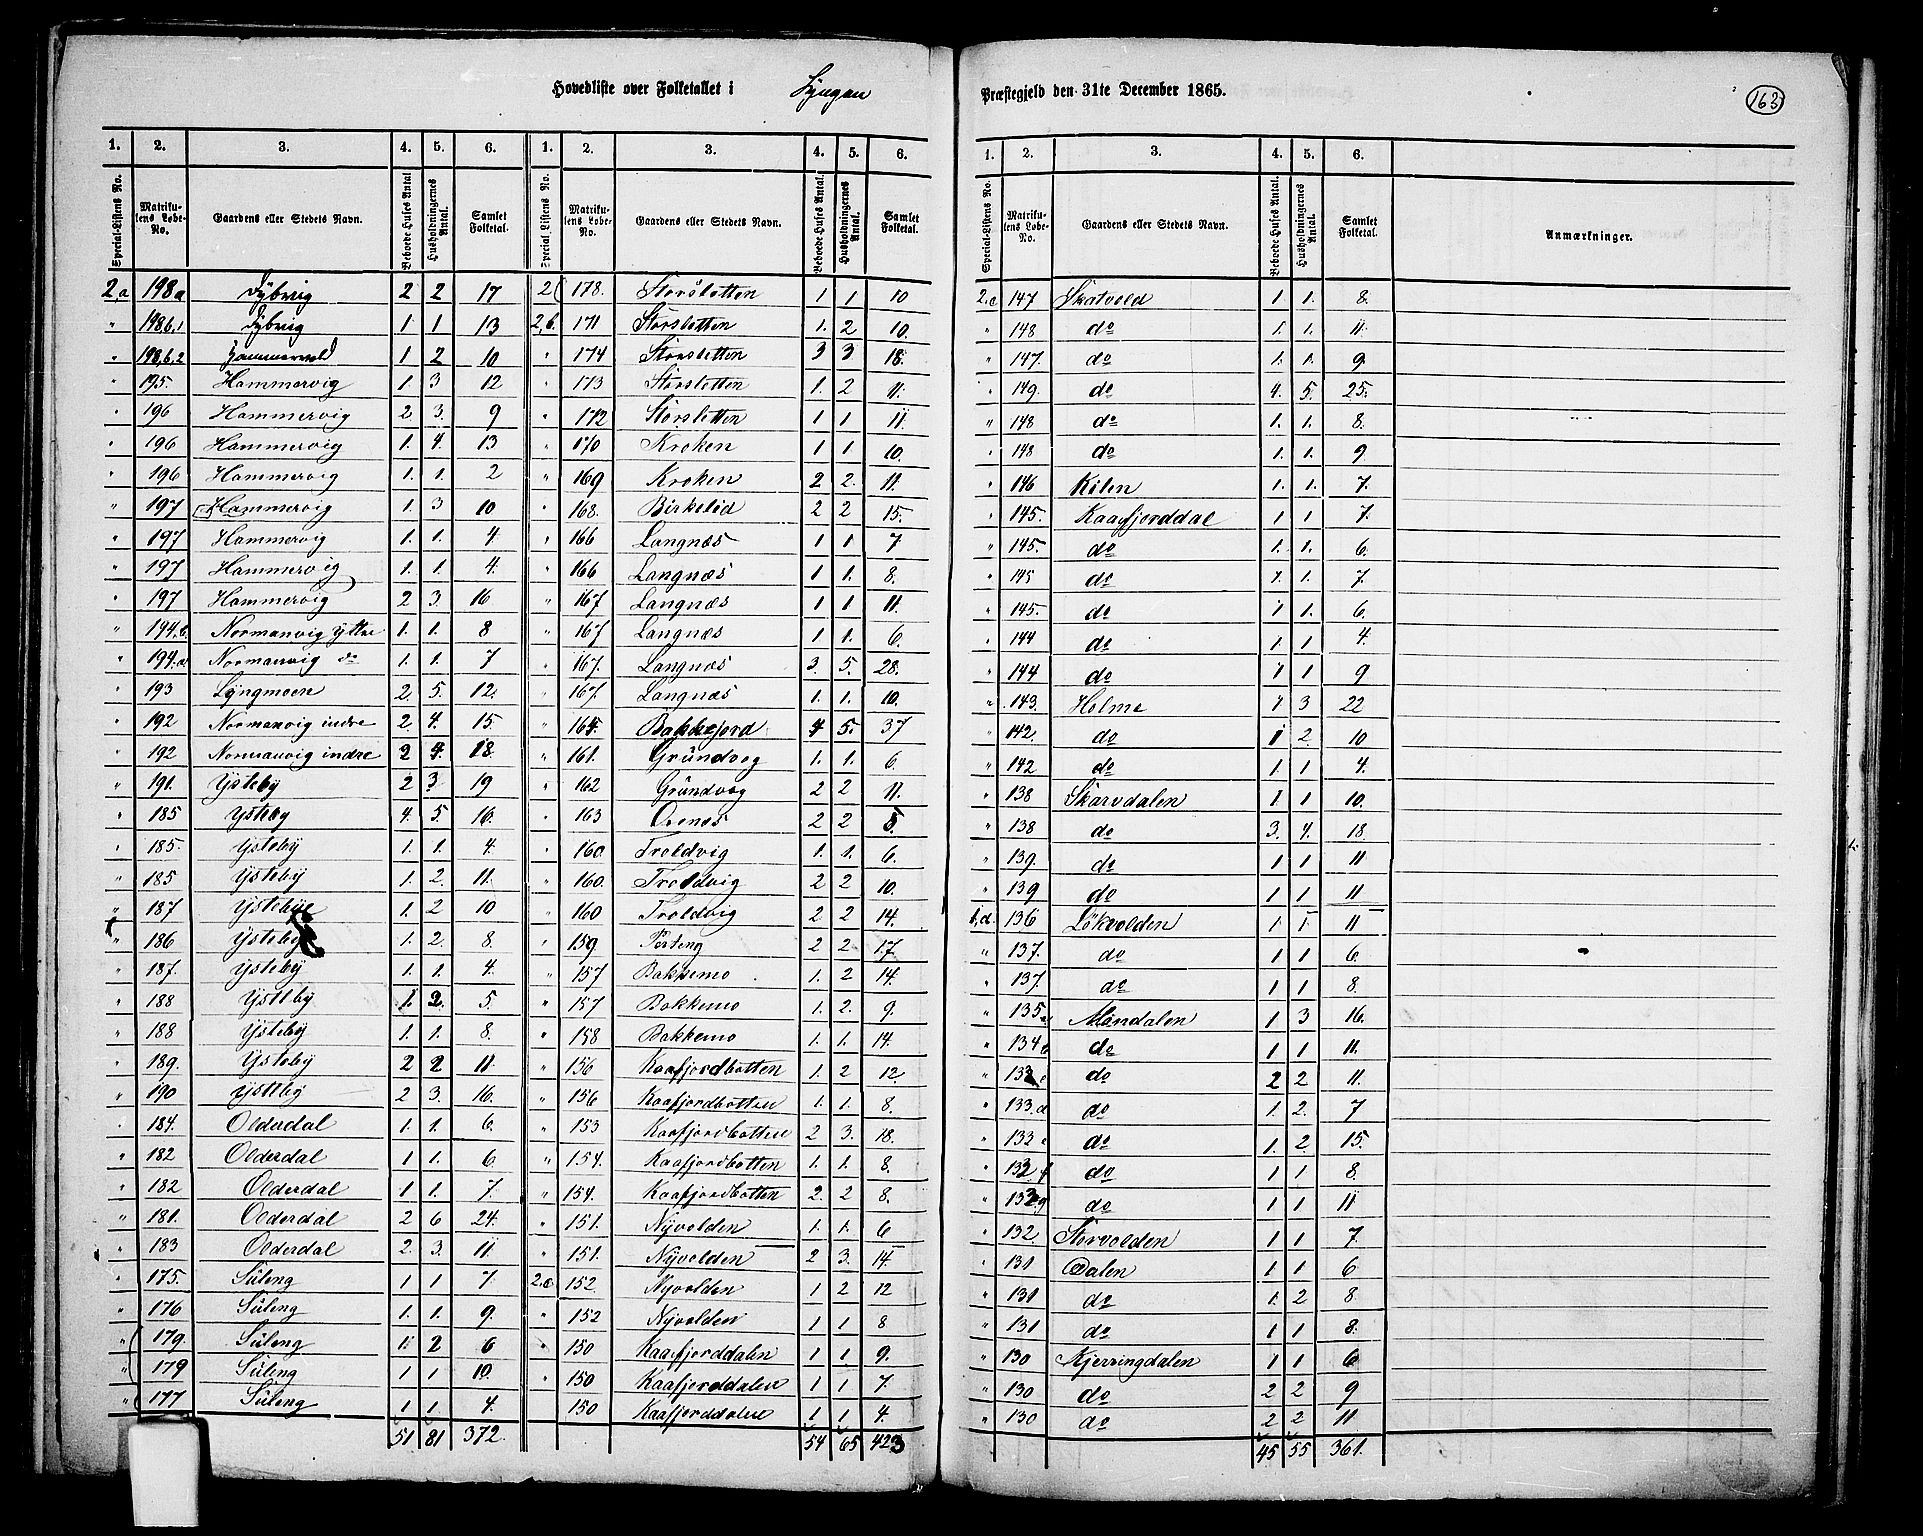 Hovedliste over Folketallet i Lyngen Præstegjeld den 31te December 1865.
163
1. 2. 3. 4. 5. 6. 1. 2. 3. 4. 5. 6.
Special-Listens No. Matrikulens Løbe-No. Gaardens eller Stedets Navn. Beboede Huses Antal Husholdningernes Antal. Samlet Folketal. Special-Listens No. Matrikulens Løbe-No. Gaardens eller Stedets Navn. Beboede Huses Antal. Husholdningernes Antal. Samlet Folketal.
2a 198a Dybvig 2 2 17 2 178. Storsletten 1 1 10
" 198,b.1 Dybvig 1 1 13 2,b. 171 Storsletten 1. 2 10.
" 198,b.2 Hammervold 1 2 10 " 174 Storsletten 3 3 18.
" 195. Hammervig 1. 3 12 " 173 Storsletten 1. 2 11.
" 196 Hammervig 2. 3. 9 " 172 Storsletten 1 1 11.
" 196 Hammervig 1. 4. 13 " 170 Kroken 1 1 10.
" 196 Hammervig 1. 1. 2 " 169 Kroken 2 2. 11.
" 197 Hammervig 1. 3 10 " 168. Birkelid 2 2 15.
" 197 Hammervig 1. 1. 4. " 166 Langnæs 1 1 7
" 197 Hammervig 1. 1. 4. " 166 Langnæs 1 1. 8.
" 197 Hammervig 2 3. 16 " 167 Langnæs 1 1 11.
" 194.b. Normanvig Yttre 1. 1. 8 " 167 Langnæs 1 1. 6.
" 194.a Normanvig do 1. 1. 7 " 167. Langnæs 3. 5. 28.
" 193 Lyngmoen 2. 5. 12. " 167. Langnæs 1. 1. 10.
" 192 Normanvig indre 2. 4. 15 " 164. Bakkejord 4 5. 37
" 192 Normanvig indre 2 4. 18. " 161. Grundvog 1. 1. 6.
" 191. Ysteby 2 3. 19 " 162 Grundvog 2 2 11.
" 185 Ysteby 4. 5 16. " 163 Ornes 2 2 5.
" 185. Ysteby 1. 1. 4. " 160. Troldvig 1. 1. 6.
" 185 Ysteby 1. 2. 11. " 160. Troldvig 2 2 10.
" 187 Ysteby 1. 2 10 " 160 Troldvig 2 2 14.
" 186 Ysteby 1. 2. 8. " 159 Porteng 2 2 17.
" 187. Ysteby 1. 1. 4. " 157 Bakkemo 1. 2 14.
" 188 Ysteby 1. 2. 5. " 157 Bakkemo 1. 2. 9.
" 188 Ysteby 1. 1. 8. " 158 Bakkemo 1. 1. 14.
" 189. Ysteby 2 2 11. " 156 Kaafjordbotten 1. 2 12.
" 190 Ysteby 2 3. 16. " 156 Kaafjordbotten 1. 1. 8.
" 184. Olderdal 1. 1. 6. " 153 Kaafjordbotten 2 3. 18.
" 182 Olderdal 1 1. 6. " 154. Kaafjordbotten 1. 1. 8.
" 182 Olderdal 1 1. 7. " 154. Kaafjordbotten 2. 2 8.
" 181. Olderdal 2 6 24. " 151. Nyvolden 1. 1. 6
" 183 Olderdal 2. 3. 11 " 151. Nyvolden 2 3. 14.
" 175. Süleng 1 1 7 2.c 152 Nyvolden 1 2 12
" 176 Süleng 1. 1. 9. " 152 Nyvolden 1 1 8
" 179. Süleng 1. 2 6 " 150 Kaafjorddalen 1 1 9.
" 179 Süleng 1 1 10. 150 Kaafjorddalen 1 1 7.
" 177 Süleng 1 1. 4. 150 Kaafjorddalen 1 1 4.
51 81 372. 54 65 423
1. 2. 3. 4. 5. 6.
Special-Listens No. Matrikulens Løbe-No. Gaardens eller Stedets Navn. Beboede Huses Antal. Husholdningernes Antal. Samlet Folketal. Anmærkninger.
2.c 147 Skatvold 1 1. 8.
" 148 do 1. 1. 11.
" 147. do 1. 1. 9.
" 149. do 4. 5. 25.
" 148 do 1. 1. 8.
" 148 do 1. 1. 9
" 146 Kilen 1. 1. 7.
" 145. Kaafjorddal 1 1 7.
" 145. do 1. 1. 6.
" 145 do 1. 1. 7.
" 145. do 1 1. 6.
" 144 do 1 1 4.
" 144 do 1 1 9
" 143. Holme 1 3 22
" 142. do 1 2. 10
" 142 do 1 1 4.
" 138 Skarvdalen 1 1 10.
" 138 do 3. 4. 18.
" 139. do 1 1 11
" 139 do 1 1 11
b,d. 136 Løkvolden 1 1 11
" 137. do 1 1 6
" 137. do 1 1 8.
" 135 Mandalen 1 3 16.
" 134 do 1 1 11.
" 133 do 2 2 11.
" 133.d do 1. 2. 7
" 133 do 1. 2 15.
" 132 f do 1 1 8.
" 132 g do 1 1 11
" 132. Storvolden 1 1 7.
" 131 Dalen 1 1 6
" 131 do 1. 2 8.
" 131 do 1 1 8.
" 130 Kjerringdalen 1 1 6
" 130 do 2 2 9
" 130 do 2 2 11
45 55 361.